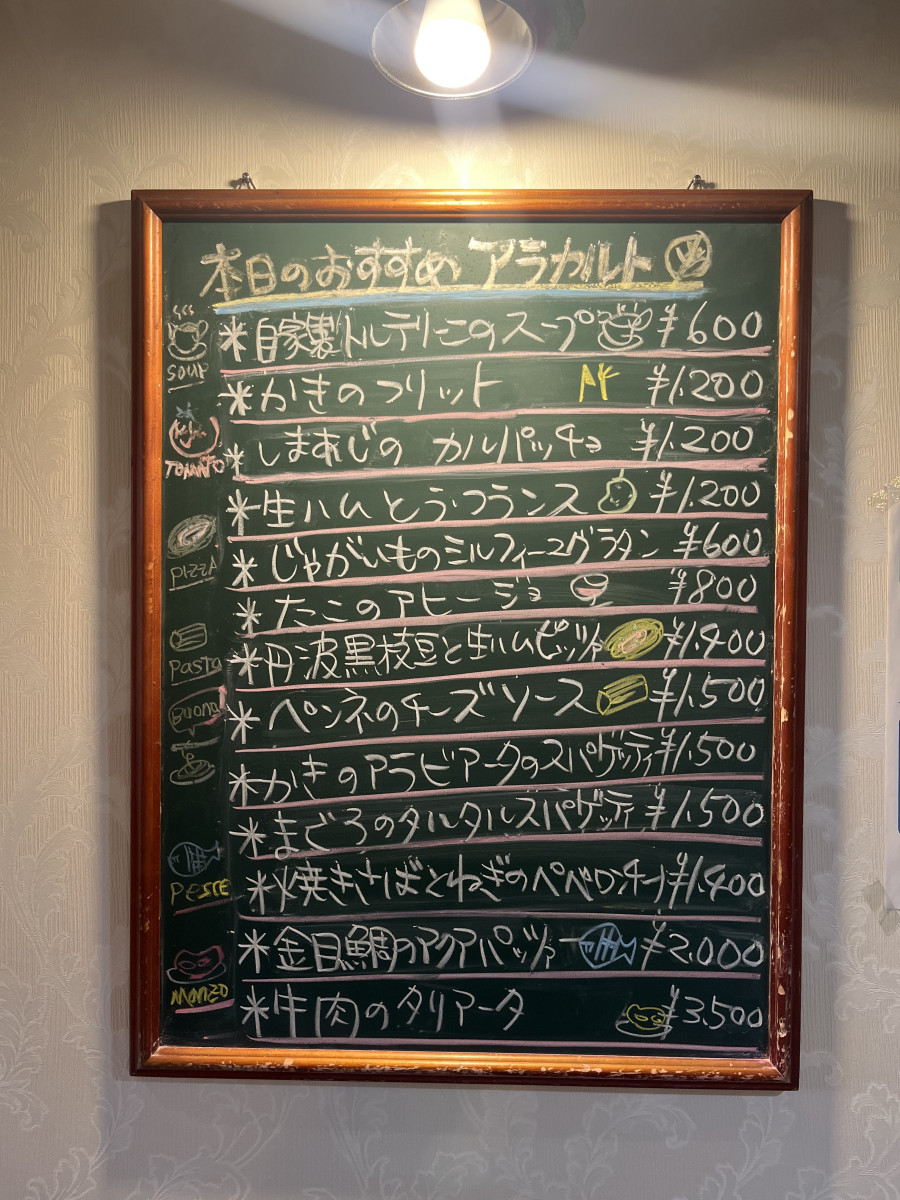 本日のおすすめ アラカルト
*自家製トルテリーニのスープ ¥600
*かきのフリット ¥1.200
*しまあじの カルパッチョ ¥1.200
*生ハムとラ・フランス ¥1.200
*じゃがいものミルフィーユグラタン ¥600
*たこのアヒージョ ¥800
*丹波黒枝豆と生ハムピッツァ ¥1.400
*ペンネのチーズソース ¥1.500
*かきのアラビアータのスパゲッティ ¥1.500
*まぐろのタルタルスパゲッティ ¥1.500
*焼きさばとねぎのペペロンチーノ ¥1.400
*金目鯛のアクアパッツァ ¥2.000
*牛肉のタリアータ ¥3.500
SOUP
TOMATO
PIZZA
Pasta
Buono
PESCE
MANZO